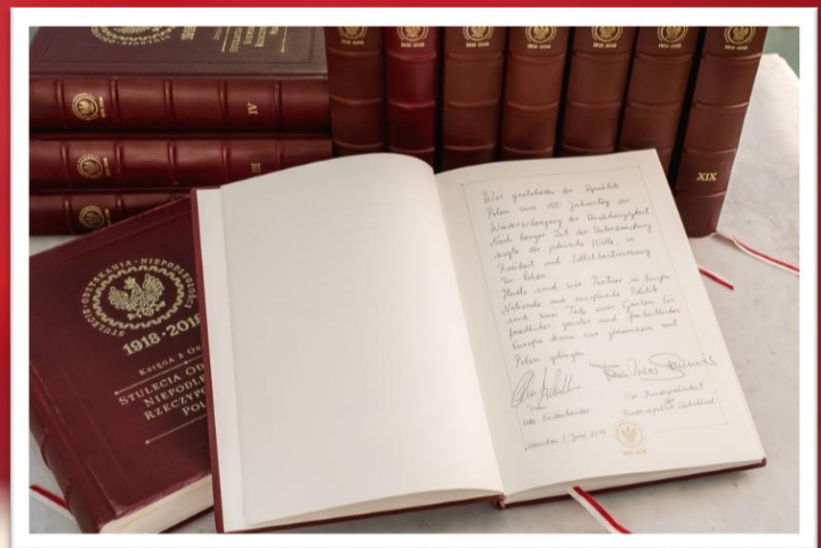 IV
III
XIX
1918-2018
STULECIE·ODZYSKANIA·NIEPODLEGŁOŚCI
1918·2018
KSIĘGA Z
STULECIA OD
NIEPODLE
RZECZYPO
POL
Wir gratulieren der Republik
Polen zum 100. Jahrestag der
Wiedererlangung der Unabhängigkeit.
Nach langer Zeit der Unterdrückung
siegte der polnische Wille, in
Freiheit und Selbstbestimmung
zu leben.
Heute sind wir Partner in Europa
Nationale und europäische Politik
sind zwei Teile eines Ganzen. Ein
friedliches, geeintes und freiheitliches
Europa kann nur gemeinsam mit
Polen gelingen.
Elke Büdenbender
Der Bundespräsident
der
Bundesrepublik Deutschland
Warschau, 5. Juni 2018
1918-2018